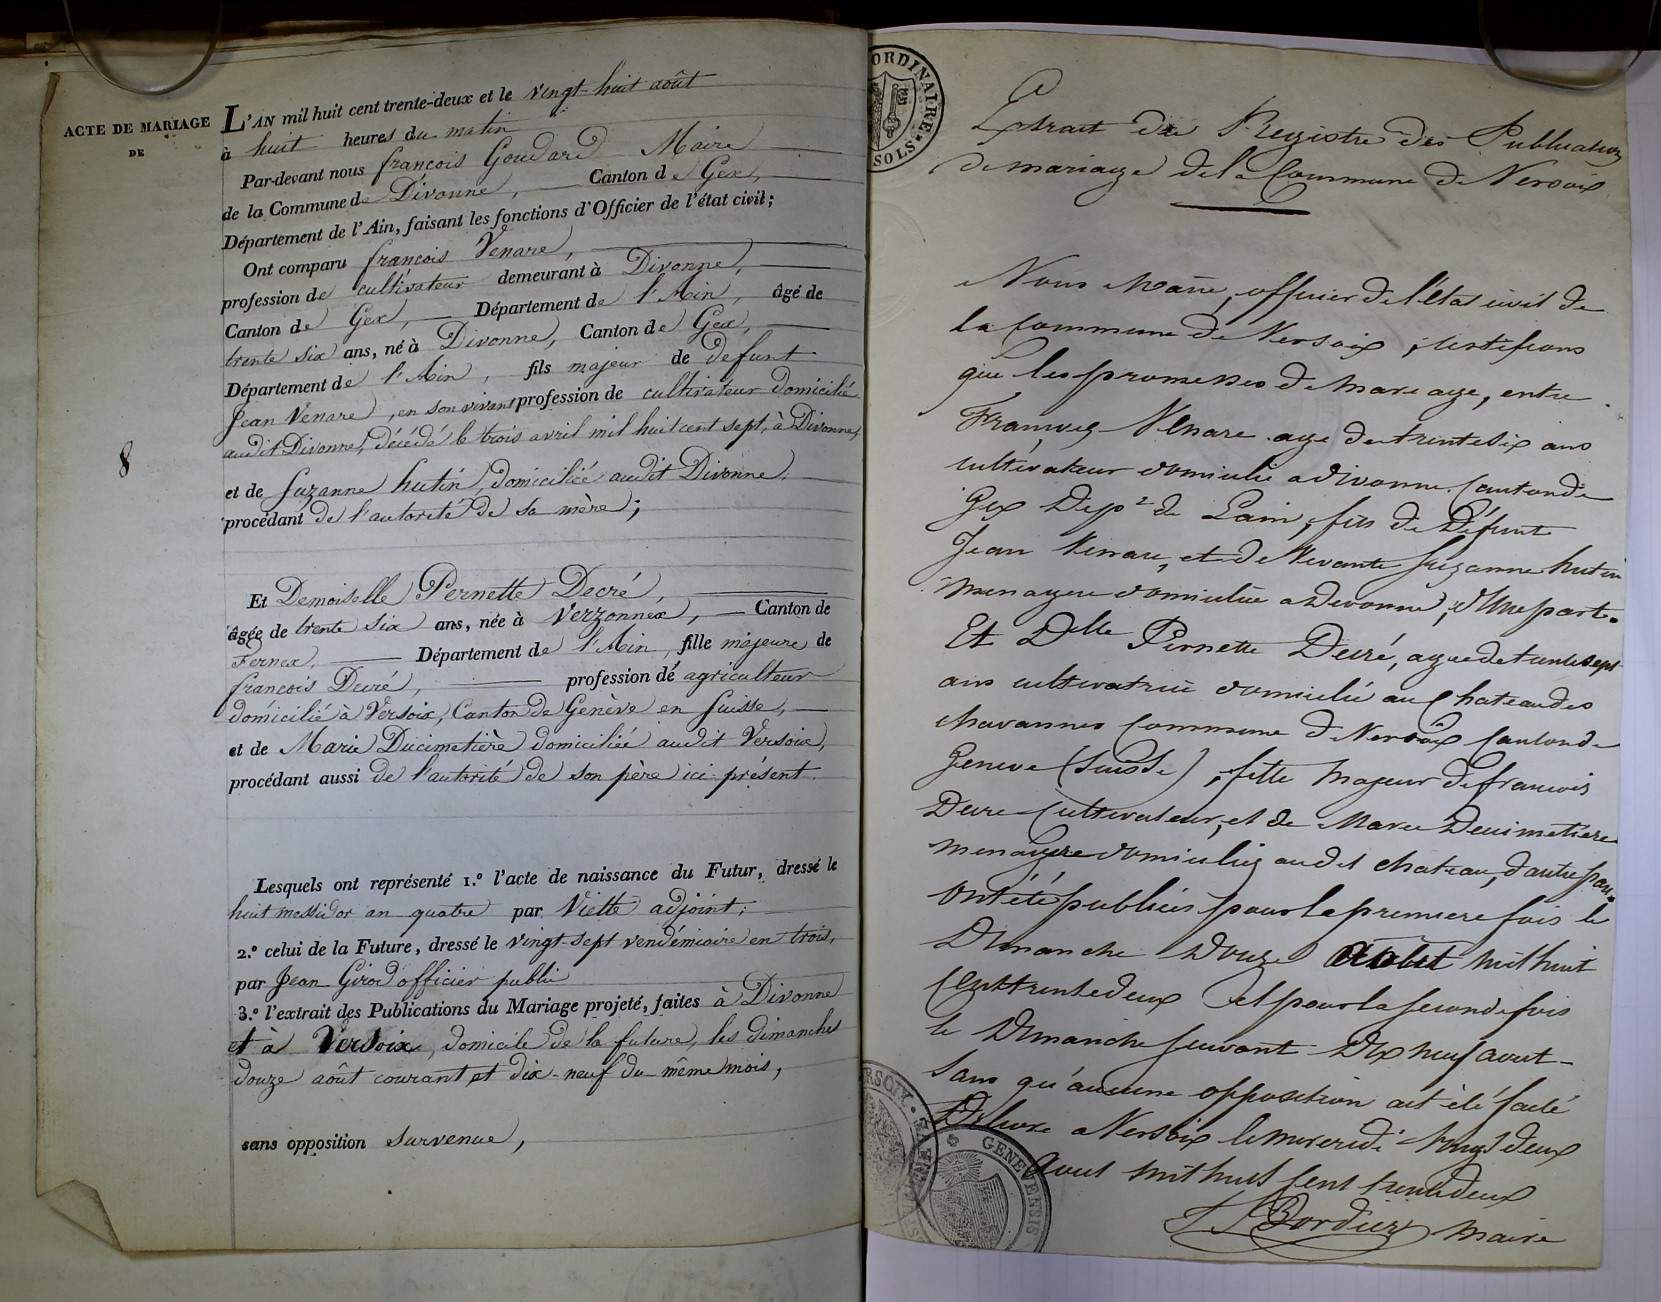 ACTE DE MARIAGE
DE
8
L'AN mil huit cent trente-deux et le vingt-huit août
à huit heures du matin
Par-devant nous françois Goudard Maire
de la Commune de Divonne, Canton de Gex,
Département de l'Ain, faisant les fonctions d'Officier de l'état civil;
Ont comparu françois Venare,
profession de cultivateur demeurant à Divonne,
Canton de Gex, Département de l'Ain, âgé de
trente six ans, né à Divonne, Canton de Gex,
Département de l'Ain, fils majeur de defunt
Jean Venare, en son vivant profession de cultivateur domicilié
audit Divonne, décédé le trois avril mil huit cent sept, à Divonne,
et de Suzanne hutin, domiciliée audit Divonne.
procédant de l'autorité de sa mère;
Et Demoiselle Pernette Decré,
âgée de trente six ans, née à Verzonnex, Canton de
Fernex, Département de l'Ain, fille majeure de
françois Decré, profession de agriculteur
domicilié à Versoix, Canton de Genève en Suisse,
et de Marie Ducimetière domiciliée audit Versoix,
procédant aussi de l'autorité de son père ici présent.
Lesquels ont représenté 1.º l'acte de naissance du Futur, dressé le
huit messidor an quatre par Viette adjoint;
2.º celui de la Future, dressé le vingt-sept vendémiaire en trois,
par Jean Girod officier public
3.º l'extrait des Publications du Mariage projeté, faites à Divonne
et à Versoix, domicile de la future, les dimanches
douze août courant et dix-neuf du même mois,
sans opposition survenue,
ORDINAIRE
SOLS
Extrait du Registre des Publications
de mariage de la Commune de Versoix
Nous Maire, officier de l'état civil de
la Commune de Versoix, certifions
que les promesses de mariage, entre
François Venare age de trente six ans
cultivateur domicilié a divonne Canton de
Gex Dep.t de Lain, fils de Défunt
Jean Venare, et de vivante Suzanne hutin
menagere domiciliée a Divonne, d'une part.
Et Dlle Pernette Decré, agée de trente sept
ans cultivatrice domicilié au Chateau des
chavannes Commune de Versoix Canton de
Geneve (Suisse), fille majeur de francois
Decre Cultivateur, et de Marie Ducimetiere
menagere domiciliés au dit chateau, d'autre part.
Ont été publiées pour la premiere fois le
Dimanche Douze Aout mil huit
Cent trente deux et pour la seconde fois
le Dimanche suivant Dix neuf aout
Sans qu'aucune opposition ait été faite
Delivre a Versoix le mercredi vingt deux
aout mil huit cent trente deux
Bordier maire
VERSOIX
GENEVENSIS